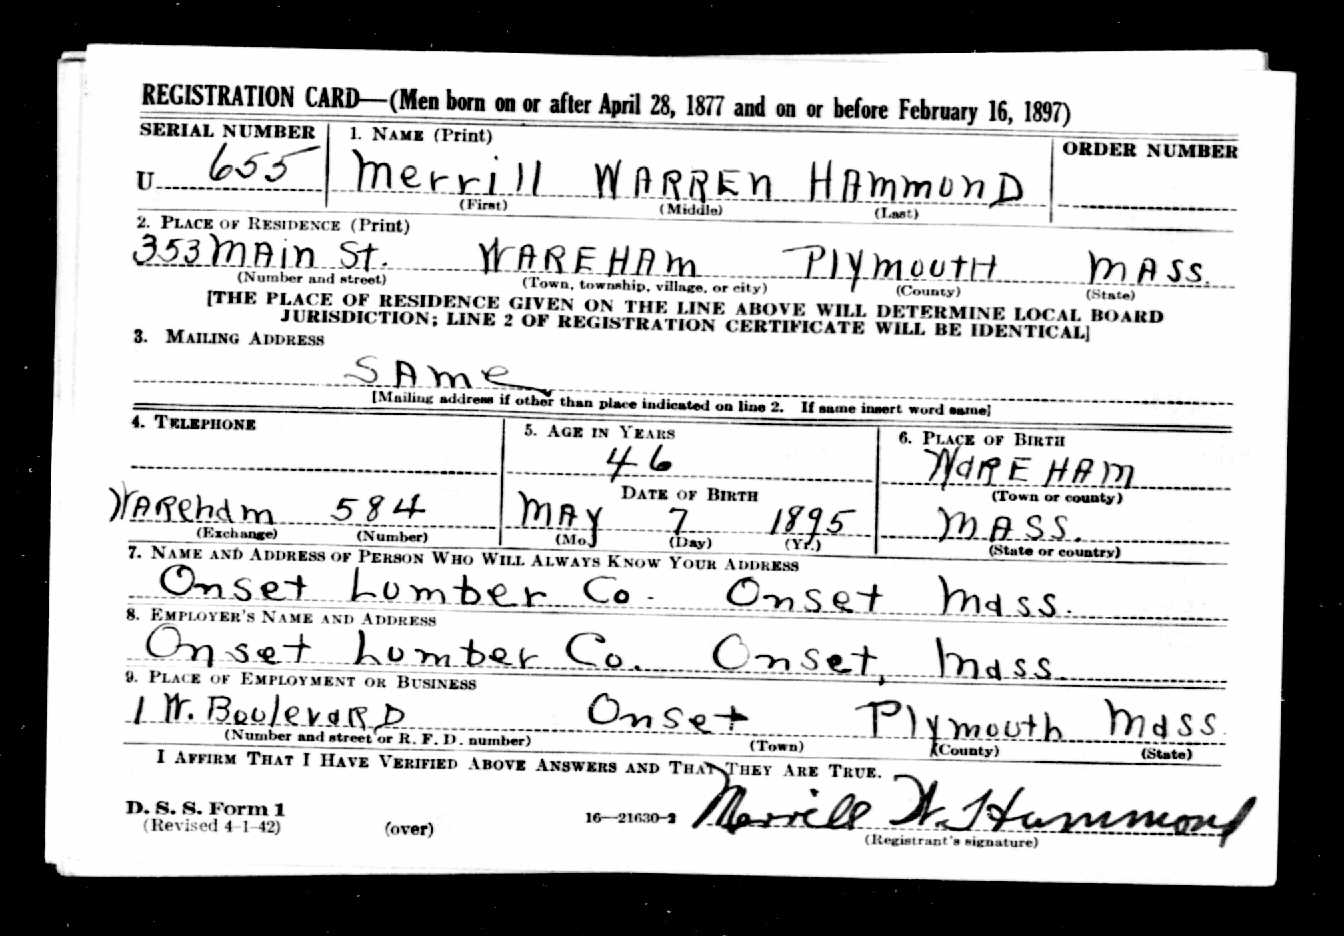 REGISTRATION CARD—(Men born on or after April 28, 1877 and on or before February 16, 1897)
SERIAL NUMBER 1. NAME (Print) ORDER NUMBER
U 655 Merrill WARREN HAmmonD
(First) (Middle) (Last)
2. PLACE OF RESIDENCE (Print)
353 MAin St. WAREHAm PlymouTH MASS.
(Number and street) (Town, township, village, or city) (County) (State)
[THE PLACE OF RESIDENCE GIVEN ON THE LINE ABOVE WILL DETERMINE LOCAL BOARD
JURISDICTION; LINE 2 OF REGISTRATION CERTIFICATE WILL BE IDENTICAL]
3. MAILING ADDRESS
SAme
[Mailing address if other than place indicated on line 2. If same insert word same]
4. TELEPHONE 5. AGE IN YEARS 6. PLACE OF BIRTH
46 WaREHAm
DATE OF BIRTH (Town or county)
WAReham 584 MAY 7 1895 MASS.
(Exchange) (Number) (Mo.) (Day) (Yr.) (State or country)
7. NAME AND ADDRESS OF PERSON WHO WILL ALWAYS KNOW YOUR ADDRESS
Onset Lumber Co. Onset Mass.
8. EMPLOYER'S NAME AND ADDRESS
Onset Lumber Co. Onset, Mass.
9. PLACE OF EMPLOYMENT OR BUSINESS
1 W. BoulevaRD Onset Plymouth Mass
(Number and street or R. F. D. number) (Town) (County) (State)
I AFFIRM THAT I HAVE VERIFIED ABOVE ANSWERS AND THAT THEY ARE TRUE.
D. S. S. Form 1
(Revised 4-1-42) (over) 16—21630-2 Merrill W. Hammond
(Registrant's signature)